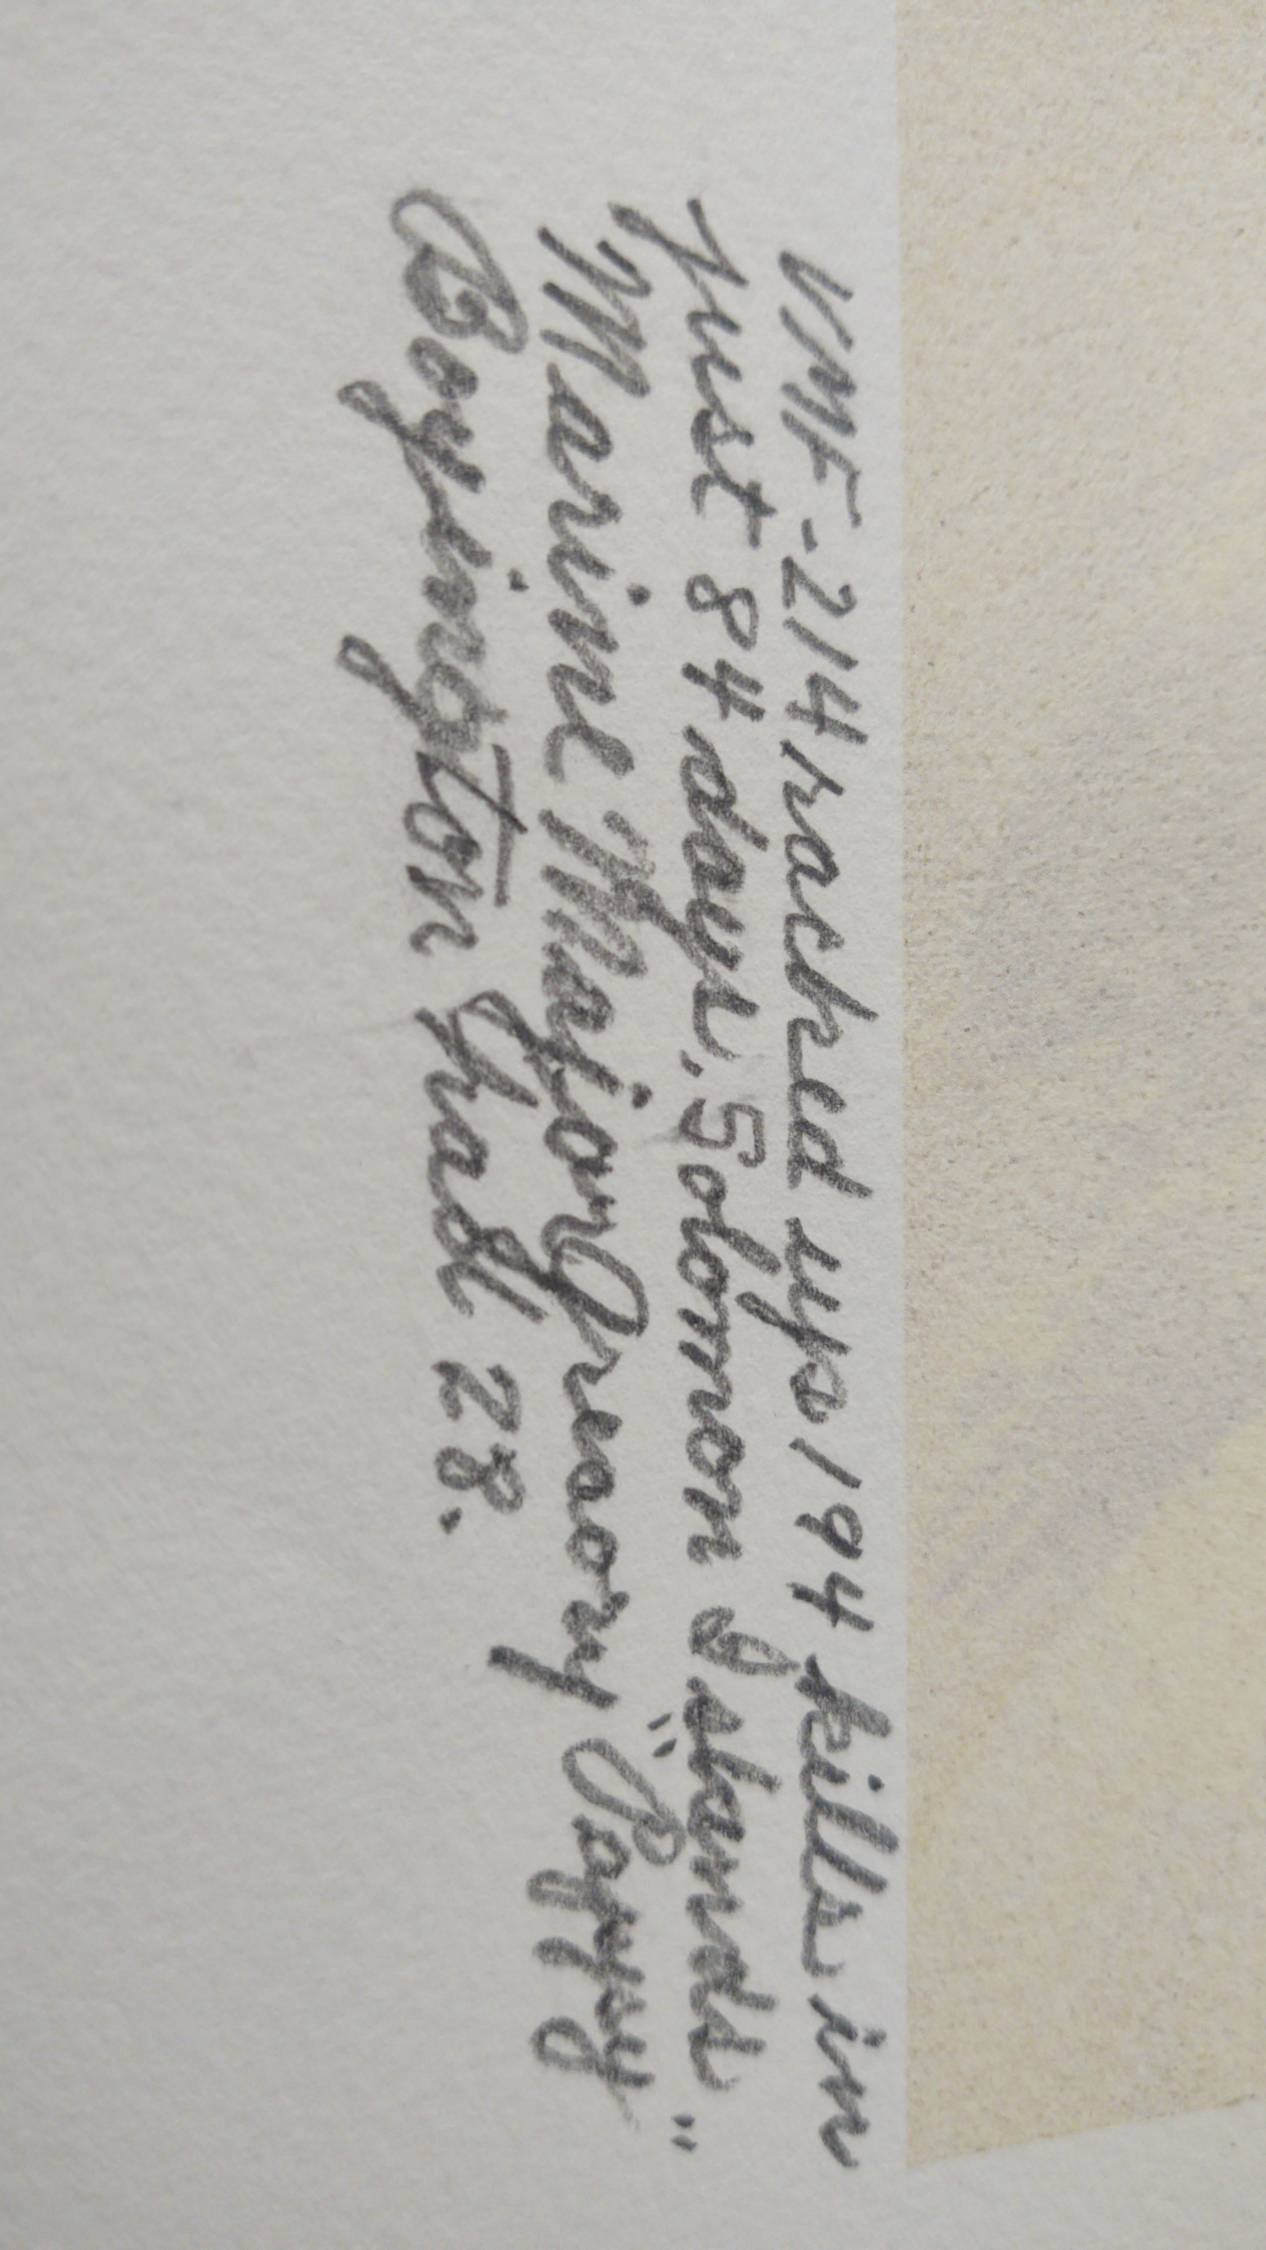 VMF-214 racked up 194 kills in
just 84 days, Solomon Islands
Marine Major Gregory "Pappy"
Boyington had 28.